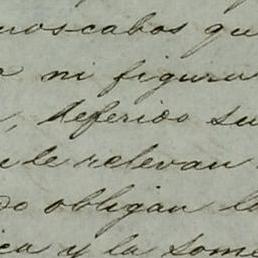 noscabos qu
ni figura
, deferido su
le relevan
do obligan la
ica y la some